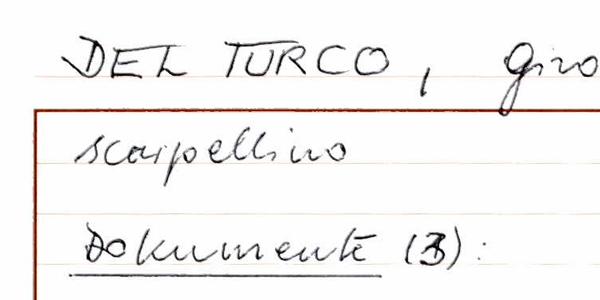 DEL TURCO, Giro
scarpellino
Dokumente (3):